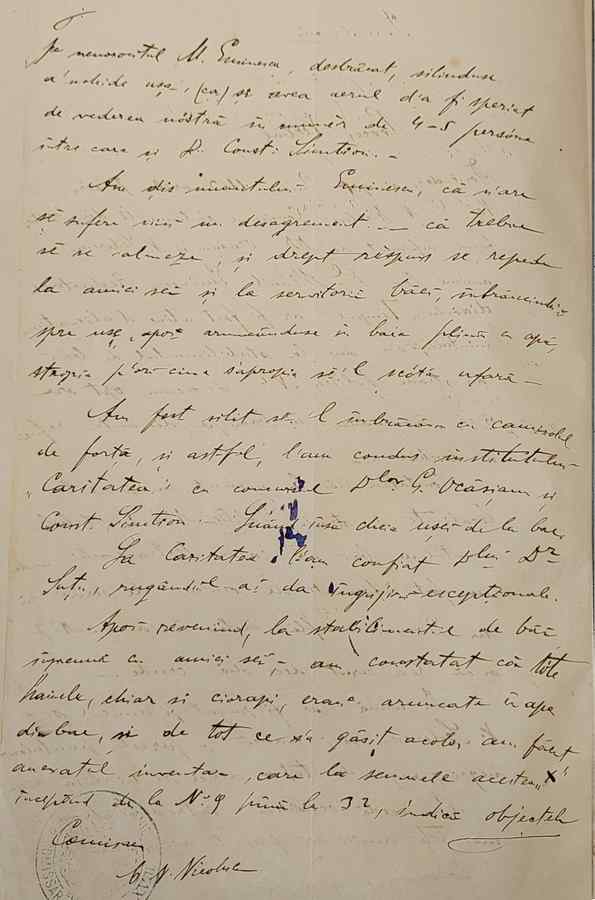 Pe nenorocitul M. Eminescu, desbrăcat, silinduse
a'nchide ușa, (ca) și avea aerul d'a fi speriat
de vederea nóstră în număr de 4-5 persóne
între care și D. Const. Simtion. –
Am dis numitului Eminescu, că n'are
să sufere nici un desagrement – că trebue
să se calmeze, și drept respuns se repede
la amicii sei și la servitorii băei, înbrâncindu-i
spre ușe, apoi aruncânduse in baia plină cu apă,
stropia p'ori-cine s'apropia să'l scótă afară –
Am fost silit să'l înbrăcăm cu camisolul
de forță, și astfel, l'am condus institutului
„Caritatea" cu concursul Dlor G. Ocășianu și
Const. Simtion. Luând însă cheia ușei de la bae
La Caritatea l'am confiat Dlui Dr
Suțu, rugându'l a'i da îngrijiri escepționale.
Apoi revenind, la stabilimentul de băi
înpreună cu amicii sei – am constatat că tóte
hainele, chiar și ciorapii, erau aruncate în apa
din bae, și de tot ce s'a găsit acolo am făcut
anexatul inventar, care la semnele acestea „X"
începênd de la No 9 pînă la 32, indică objectele
Comisar
C. N. Nicolescu